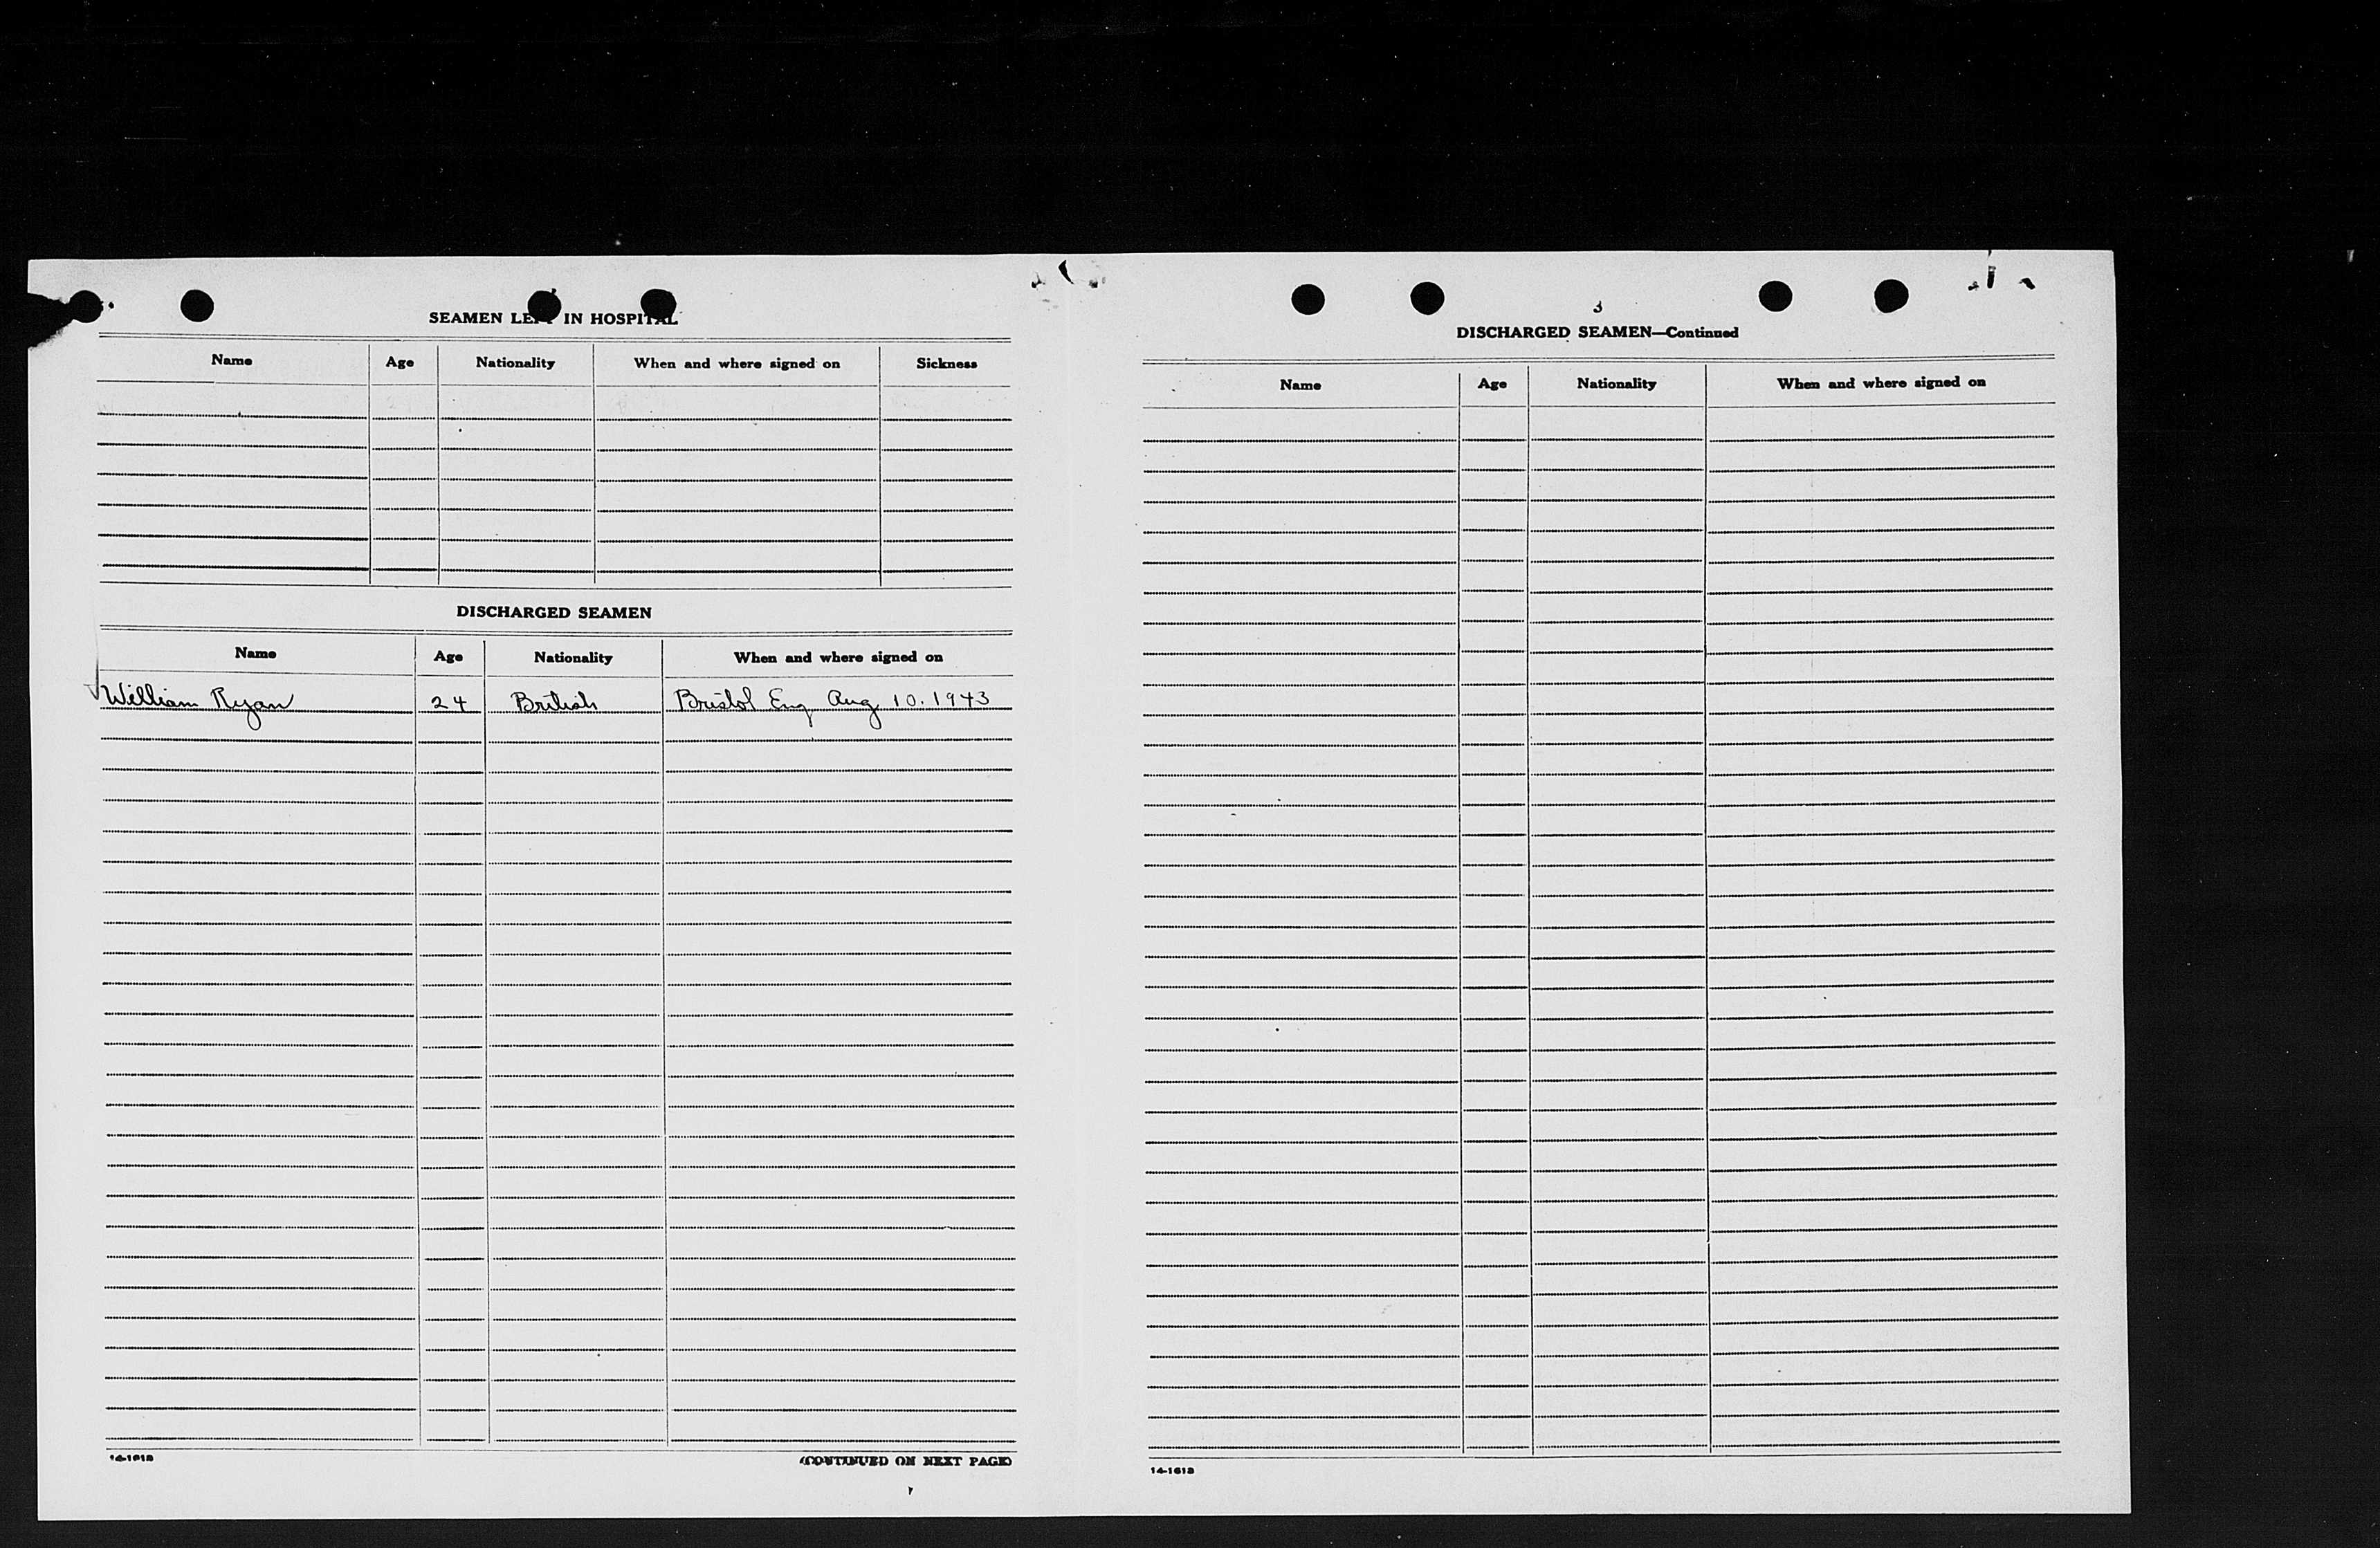 SEAMEN LEFT IN HOSPITAL
Name Age Nationality When and where signed on Sickness
DISCHARGED SEAMEN
Name Age Nationality When and where signed on
William Ryan 24 British Bristol Eng. Aug 10. 1943
14-1613 (CONTINUED ON NEXT PAGE)
3
DISCHARGED SEAMEN—Continued
Name Age Nationality When and where signed on
14-1613